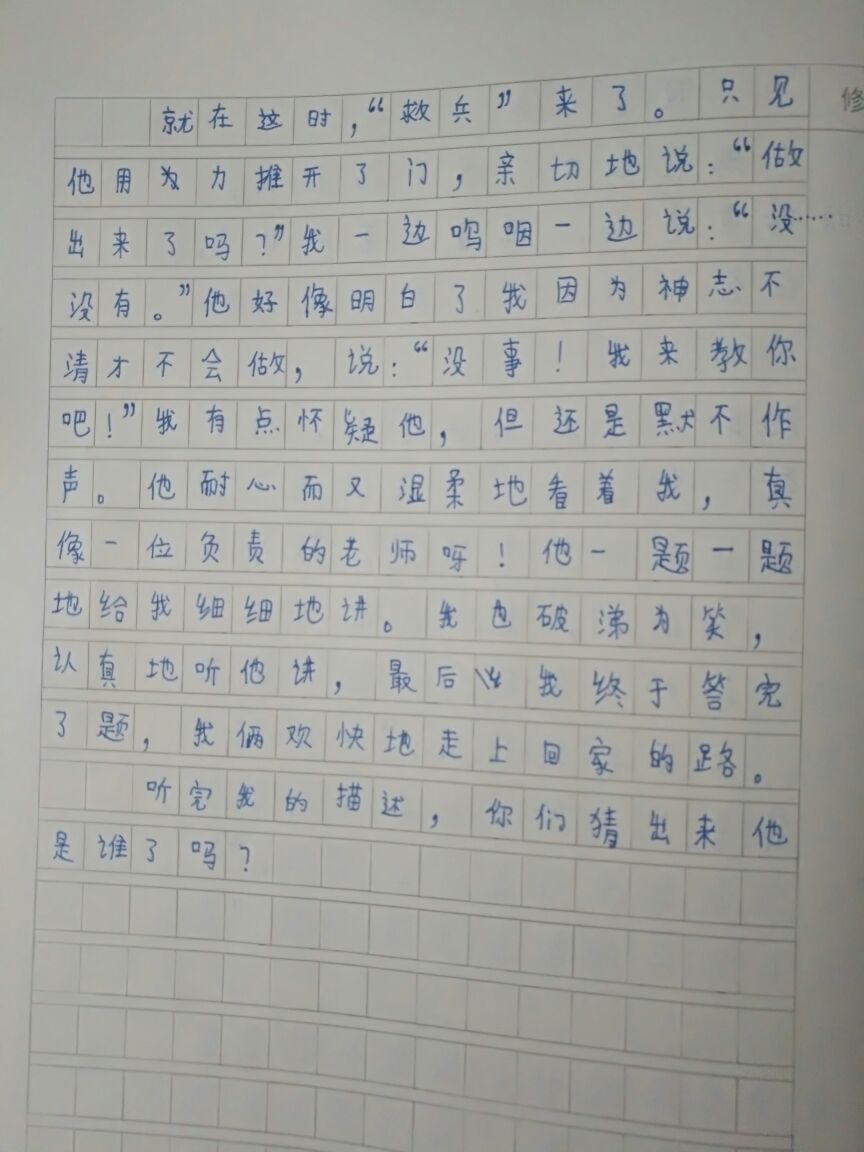 就在这时，“救兵”来了。只见
他用为力推开了门，亲切地说：“做
出来了吗？”我一边呜咽一边说：“没……
没有。”他好像明白了我因为神志不
清才不会做，说：“没事！我来教你
吧！”我有点怀疑他，但还是默不作
声。他耐心而又温柔地看着我，真
像一位负责的老师呀！他一题一题
地给我细细地讲。我也破涕为笑，
认真地听他讲，最后我终于答完
了题，我俩欢快地走上回家的路。
听完我的描述，你们猜出来他
是谁了吗？
修